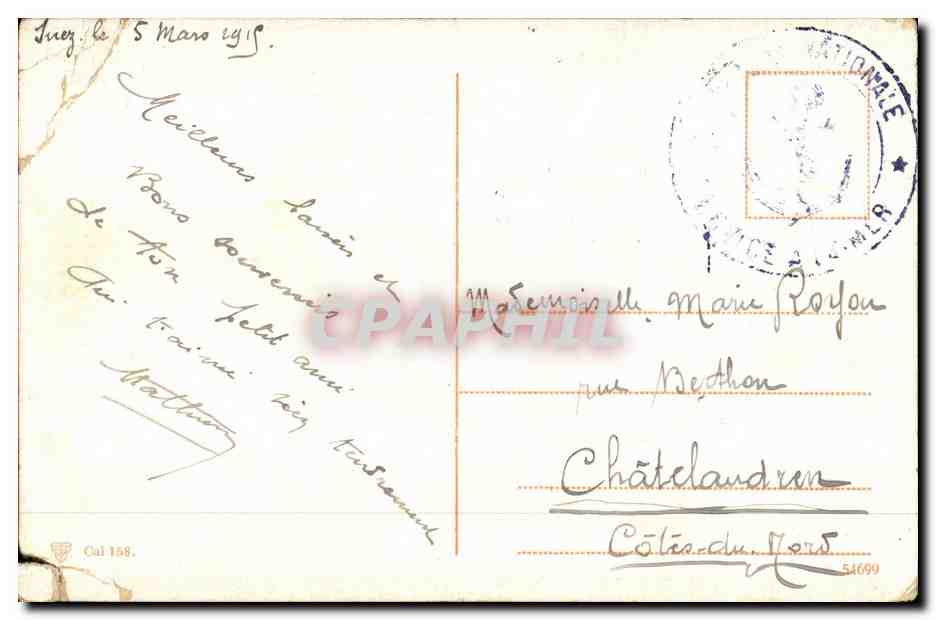 Suez, le 5 Mars 1915
Meilleurs baisers et
Bons souvenirs
de ton petit ami
qui t'aime bien tendrement
Mathurin
NATIONALE
SERVICE À LA MER
CPAPHIL
Mademoiselle Marie Royou
rue Berthou
Châtelaudren
Côtes-du-Nord
Cal 158.
54699